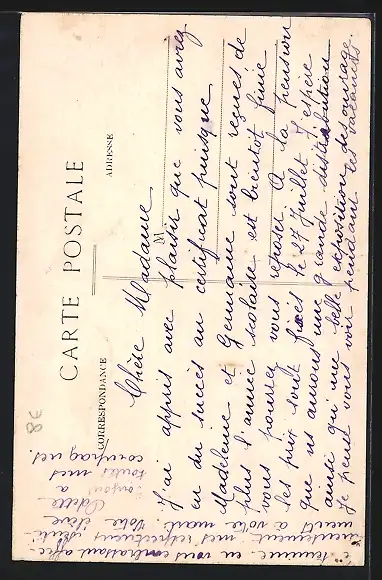 CARTE POSTALE
CORRESPONDANCE
ADRESSE
M
8€
Chère Madame
j'ai appris avec plaisir que vous avez
eu du succès au certificat puisque
Madeleine et Germaine sont reçues de
plus l'année scolaire est bientôt finie
vous pourrez vous reposer A la pension
les prix sont fixés le 27 Juillet J'espère
que ns aurons une grande distribution
ainsi qu'une belle exposition des ouvrages
Je peux vous voir pendant les vacances
termine en vous embrassant affec-
tueusement, mes respectueux
ment à votre mari Votre élève
Odette
Bonjour à
toutes mes
compagnes